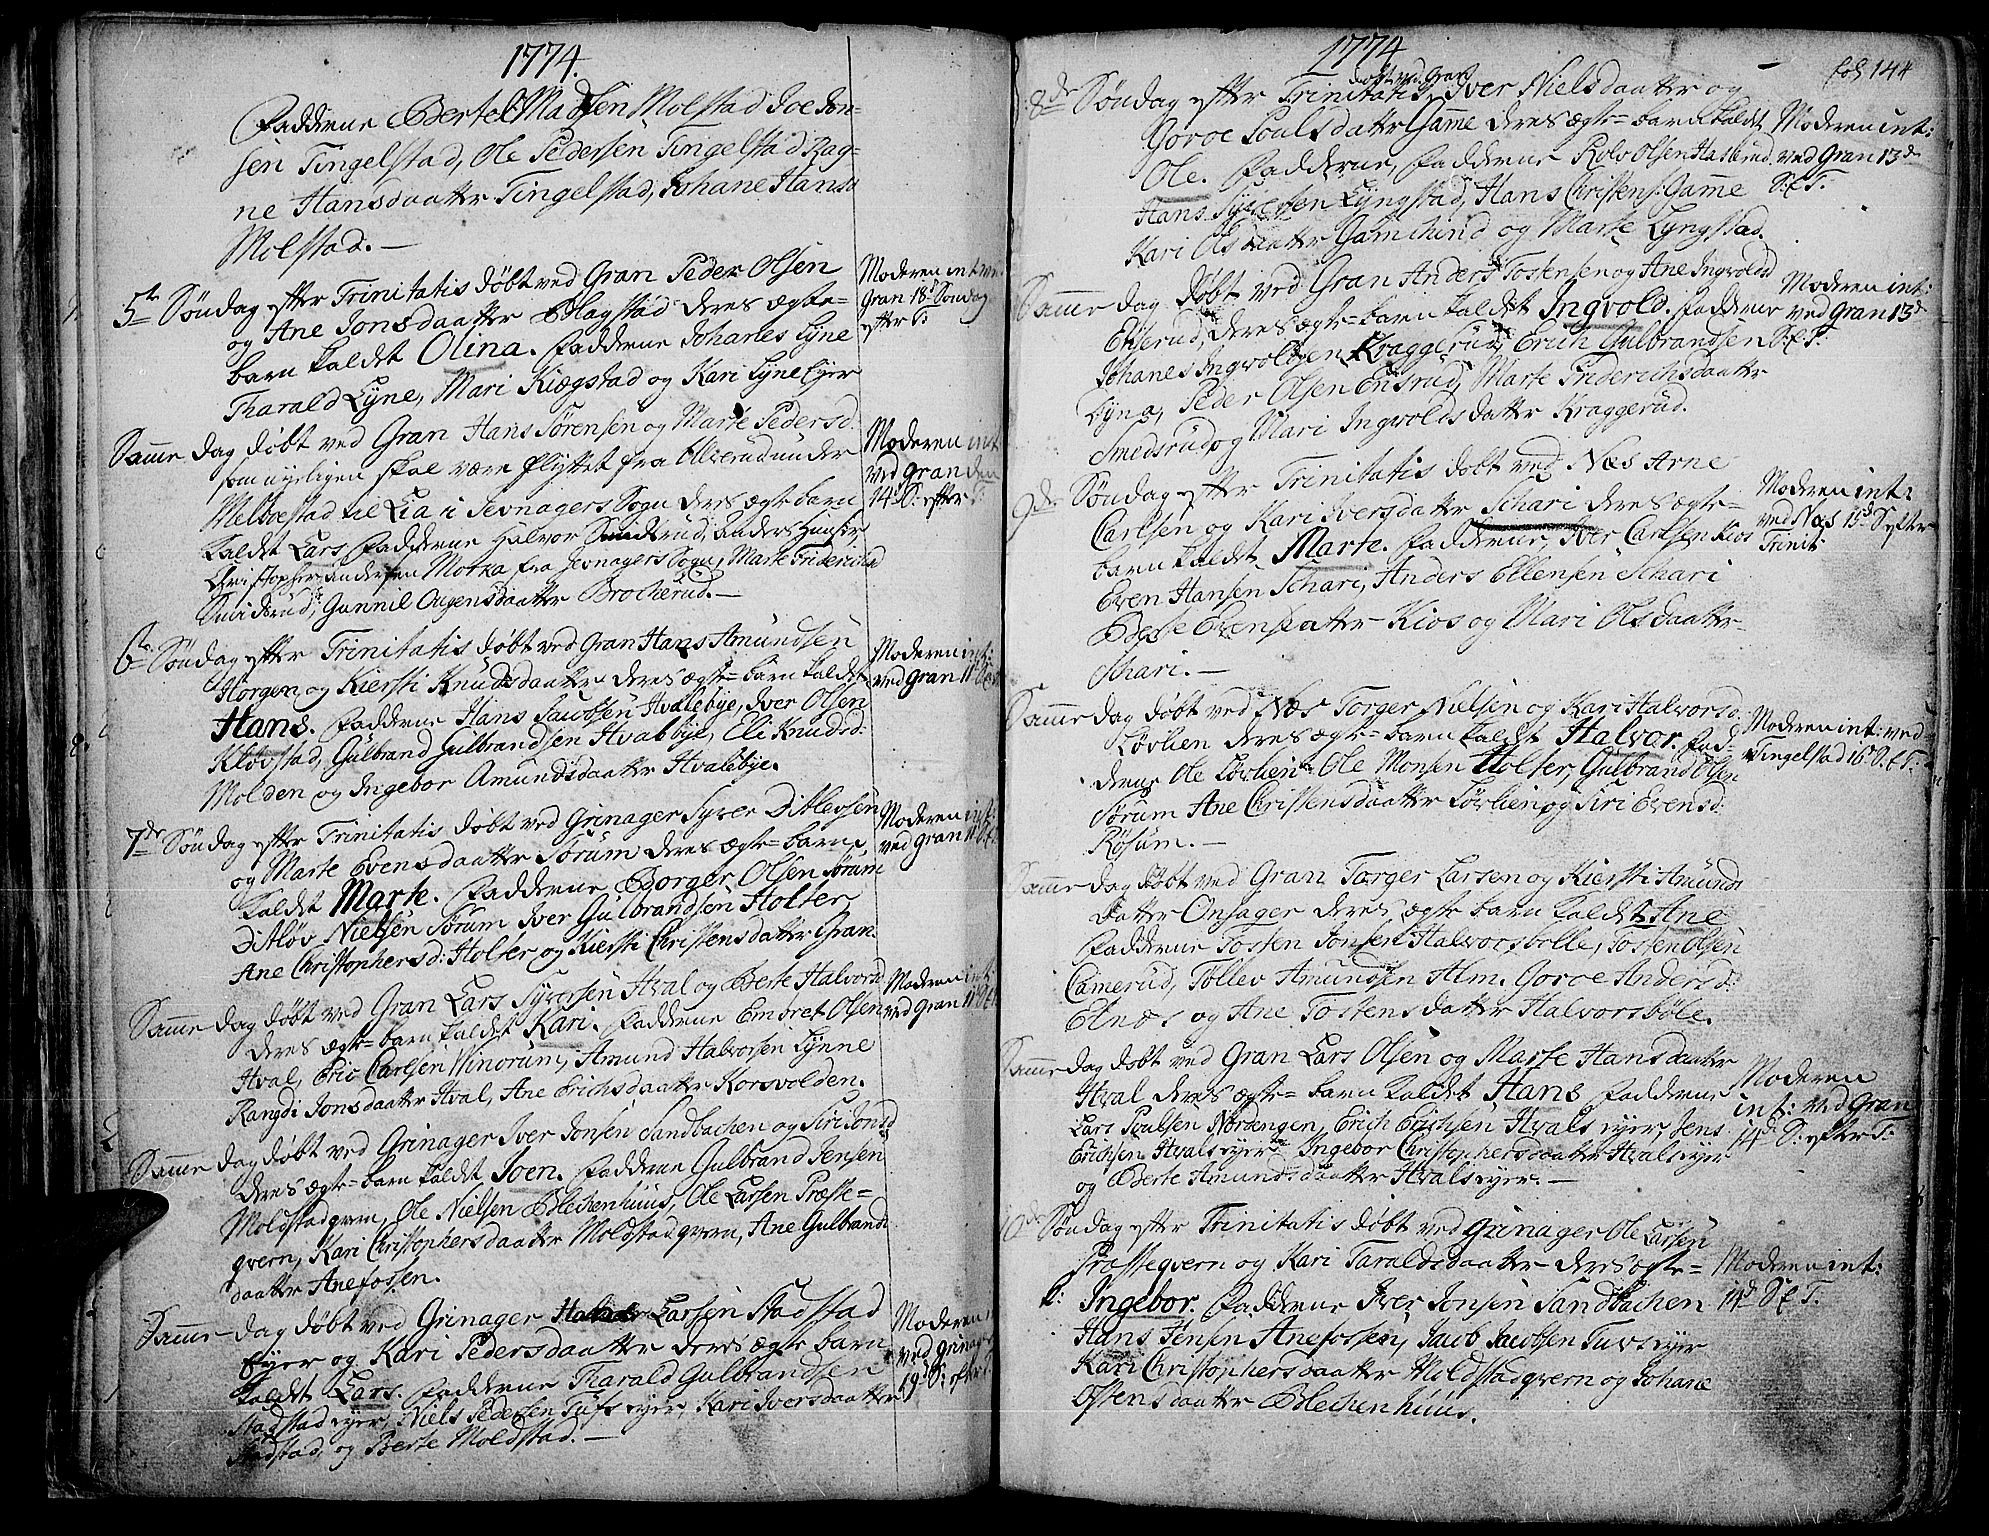 1774.
Fadderne Bertel Madsen Molstad Joe Jon-
sen Tingelstad, Ole Pedersen Tingelstad Rag-
ne Hansdaatter Tingelstad, Johane Hans
Molstad. —
5te Søndag efter Trinitatis døbt ved Gran Peder Olsen
og Ane Jonsdaatter Hagstad deres ægte-
barn kaldet Olina. Fadderne Johanes Lyne
Tharald Lyne, Mari Kiægstad og Kari Lyne Eyer
Moderen int: ved
Gran 18d Søndag
efter T:
Samme dag døbt ved Gran Hans Sørensen og Marte Pedersd.
som nyeligen skal være flyttet fra Ellverud under
Melboestad til Lia i Jevnagers Sogn deres ægte barn
kaldet Lars. Fadderne Halvor Smidsrud, Anders
Christopher Andersen Morka fra Jevnagers Sogn, Marte Friderichsd
Smidsrud, Gunnil Augensdaatter Brocherud. —
Moderen int:
ved Gran den
14d S: efter T:
6te Søndag efter Trinitatis døbt ved Gran Hans Amundsen
Horgen og Kiersti Knudsdaatter deres ægte-barn kaldet
Hans. Fadderne Hans Jacobsen Hvalebye, Iver Olsen
Kløvstad, Gulbrand Gulbrandsen Hvalbye, Eli Knudsd:
Molden og Ingebor Amundsdaatter Hvalebye.
Moderen int:
ved Gran 11d S.e.T.
7de Søndag efter Trinitatis døbt ved Grinager Syver Ditlevsen
og Marte Evensdaatter Sørum deres ægte-barn
kaldet Marte. Fadderne Borger Olsen Sørum
Ditløv Nielsen Sørum Iver Gulbrandsen Holter
Ane Christophersd: Holter og Kiersti Christensdatter Gran.
Moderen int:
ved Gran 11d S.e.T.
Samme dag døbt ved Gran Lars Syversen Hval og Berte Halvorsd
deres ægte-barn kaldet Kari. Fadderne Embret Olsen
Hval, Eric Carlsen Winorum, Amund Halvorsen Lynne
Rangdi Jonsdaatter Hval, Ane Erichsdaatter Korsvolden.
Moderen int:
ved Gran 11d S.e.T.
Samme dag døbt ved Grinager Iver Jonsen Sandbachen og Siri Jonsd
deres ægte-barn kaldet Joen. Fadderne Gulbrand Jensen
Moldstadqvern, Ole Nielsen Blechenhuus, Ole Larsen Præste=
qvern, Kari Christophersdaatter Moldstadqvern, Ane Gulbrands
daatter Anefossen.
Samme dag døbt ved Grinager Larsen Stadstad
Eyer og Kari Pedersdaatter deres ægte barn
kaldet Lars. Fadderne Tharald Gulbrandsen
Stadstad eyer, Niels Pedersen Tufs eyer, Kari Iversdaatter
Stadstad, og Berte Moldstad. —
Moderen
ved Grinager
19d S: efter T:
1774
fol 144
8de Søndag efter Trinitatis døbt ved Gran Iver Nielsdaatter og
Goroe Poulsdatter Game deres ægte-barn kaldet
Ole. Fadderne, Fadderne Rolv Olsen Hasbrud
Hans Syversen Lyngstad, Hans Christens: Gamme
Kari Olsdaatter Gamehund og Marte Lyngstad.
Moderen int:
ved Gran 13d
S: e T:
Samme dag døbt ved Gran Anders Tostensen og Ane Ingvoldsd
Enserud, deres ægte-barn kaldet Ingvold. Fadderne
Johanes Ingvoldsen Kraggerud, Erich Gulbrandsen
Lyna, Peder Olsen Ensrud, Marte Friderichsdaatter
Smedsrud og Mari Ingvoldsdatter Kraggerud.
Moderen int:
ved Gran 13d
S: e T:
9de Søndag efter Trinitatis døbt ved Næs Arne
Carlsen og Kari Iversdatter Schari deres ægte-
barn kaldet Marte. Fadderne, Iver Carlsen Kios
Even Hansen Schari, Anders Ellensen Schari
Berte Evensdatter Kios og Mari Olsdaatter
Schari. —
Moderen int:
ved Næs 15d S efter
Trinit:
Samme dag døbt ved Næs Torger Nielsen og Kari Halvorsd.
Løvlien deres ægte-barn kaldet Halvor. Fad-
derne Ole Løvlien Ole Monsen Holter, Gulbrand Olsen
Sørum Ane Christensdaatter Løvlien og Siri Evensd.
Røsum. —
Moderen int: ved
Tingelstad 16d S.e.T.
Samme dag døbt ved Gran Torger Larsen og Kiersti Amunds
datter Onsager deres ægte barn kaldet Ane
Fadderne Tosten Jonsen Halvorsbolle, Tosten Olsen
Camerud, Tollev Amundsen Alm. Goroe Andersd:
Etnæs og Ane Tostensdatter Halvorsbøle.
Samme dag døbt ved Gran Lars Olsen og Marte Hansdaatter
Hval deres ægte-barn kaldet Hans Fadderne
Lars Poulsen Nordengen, Erich Erichsen Hvals eyer, Jens
Erichsen Hvals eyer Ingebor Christophersdaatter Hvals eyer
og Berte Amundsdaatter Hvals eyer. —
Moderen
int: ved Gran
14d S: efter T:
10de Søndag efter Trinitatis døbt ved Grinager Ole Larsen
Præsteqvern og Kari Taraldsdaatter deres ægte=
b: Ingebor. Fadderne Iver Jonsen Sandbachen
Hans Jensen Anefossen, Jacob Jacobsen Tuvs eyer
Kari Christophersdaatter Moldstadqvern og Johane
Ostensdaatter Blechenhuus.
Moderen int:
14d S.e T: